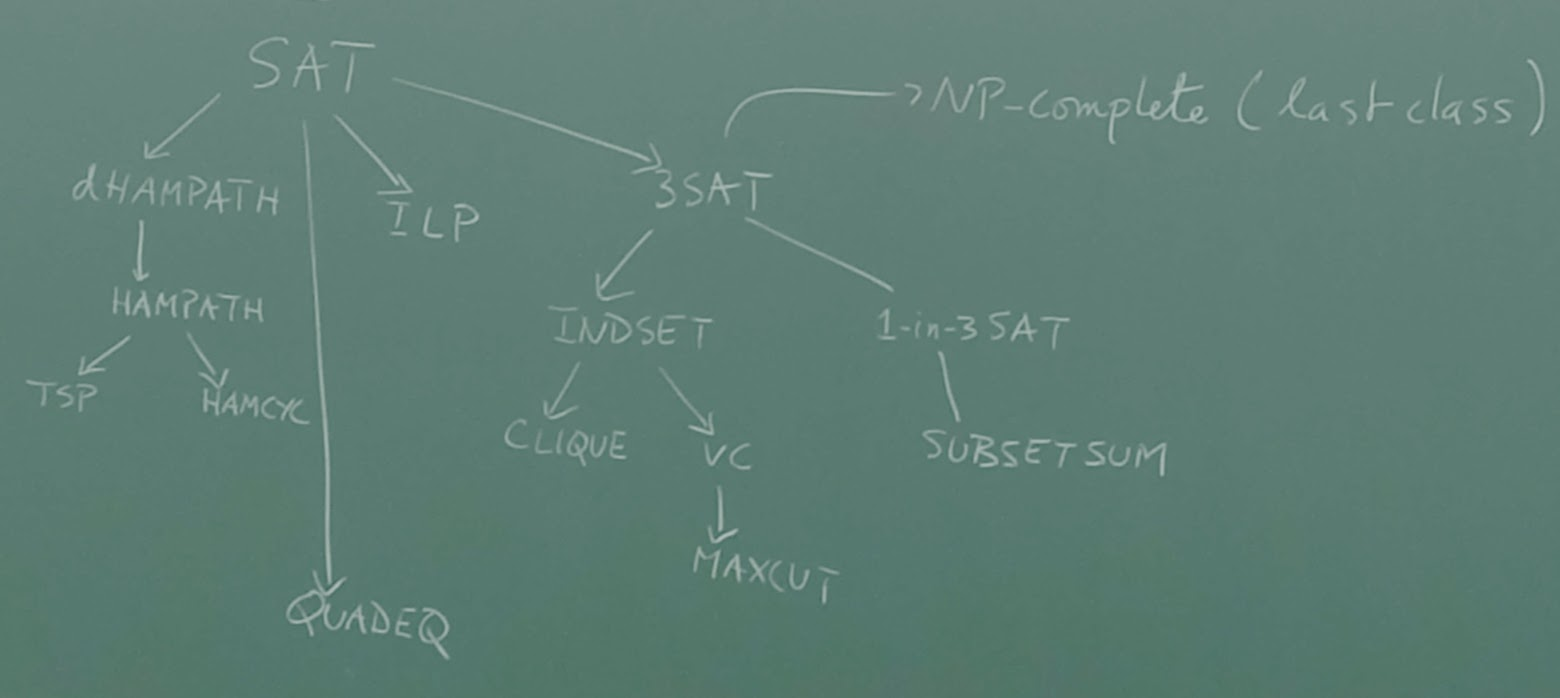 SAT
NP-complete (last class)
dHAMPATH
ILP
3SAT
HAMPATH
INDSET
1-in-3SAT
TSP
HAMCYC
CLIQUE
VC
SUBSETSUM
MAXCUT
QUADEQ